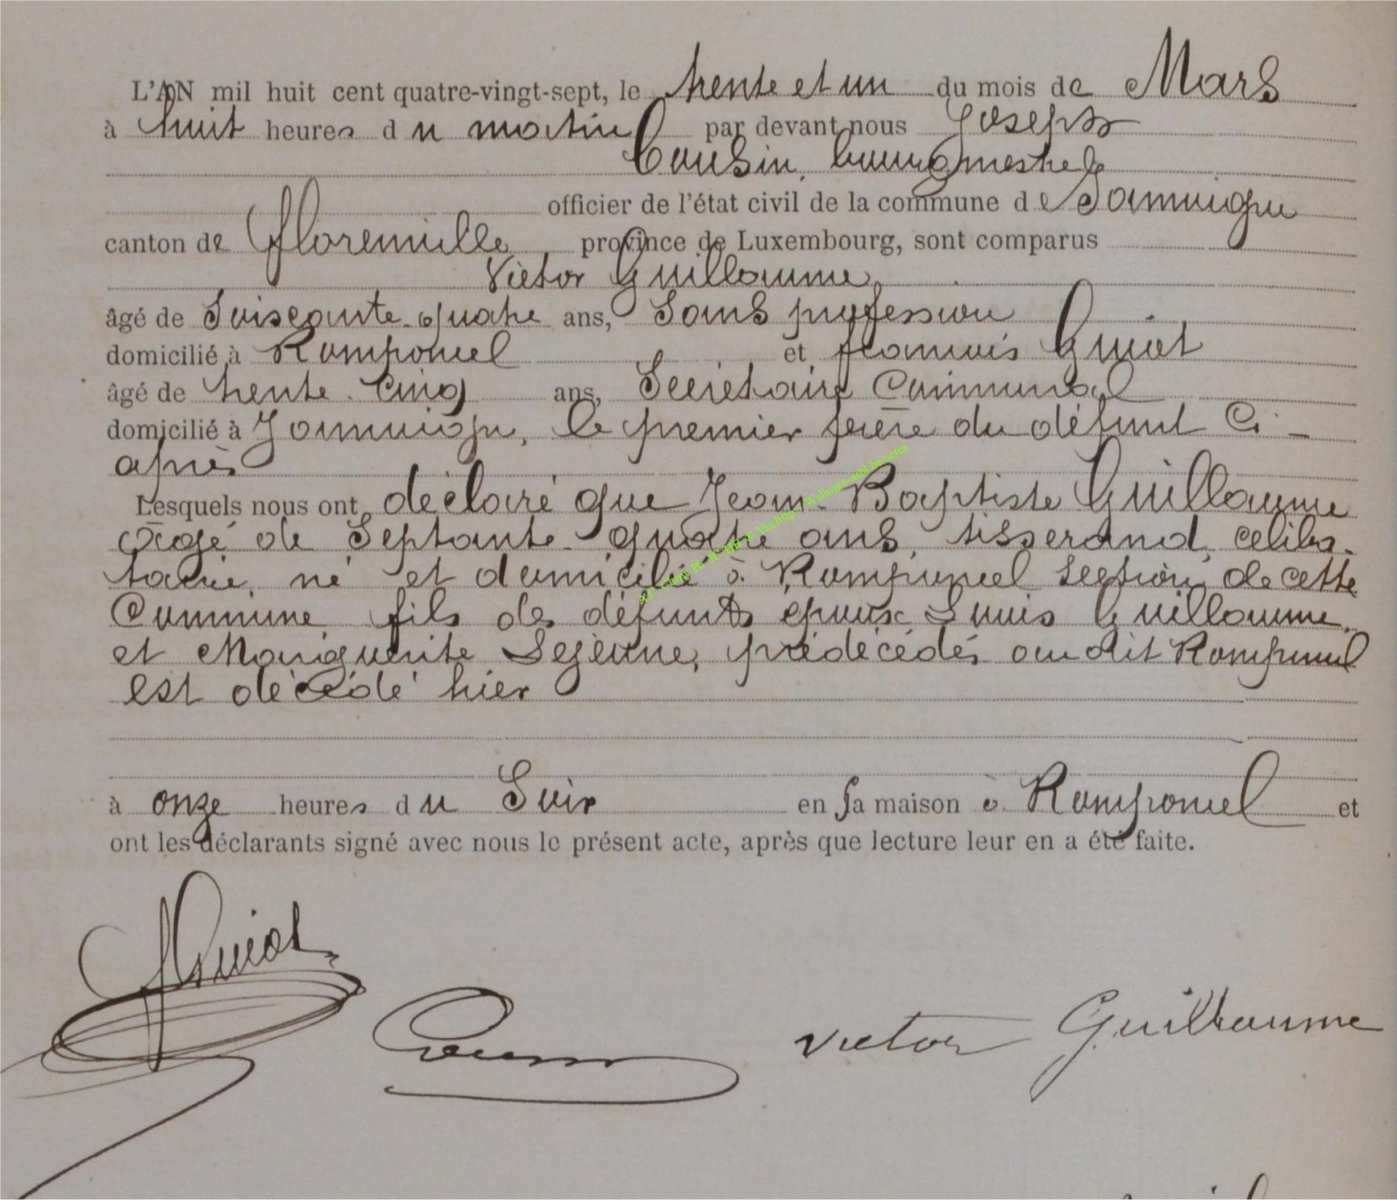 L'AN mil huit cent quatre-vingt-sept, le trente et un du mois de Mars
à huit heures du matin par devant nous Joseph
Cousin, bourgmestre
officier de l'état civil de la commune de Jamoigne
canton de Florenville province de Luxembourg, sont comparus
Victor Guillaume
âgé de Soixante-quatre ans, Sans profession
domicilié à Romponcel et françois Guiot
âgé de trente-Cinq ans, Secrétaire Communal
domicilié à Jamoigne, le premier frère du défunt Ci-
après
Lesquels nous ont déclaré que Jean-Baptiste Guillaume
âgé de Septante-quatre ans, tisserand, céliba-
taire, né et domicilié à Romponcel section de cette
Commune fils des défunts époux Louis Guillaume
et Marguerite Lejeune, prédécédés au dit Romponcel
est décédé hier
à onze heures du Soir en sa maison à Romponcel et
ont les déclarants signé avec nous le présent acte, après que lecture leur en a été faite.
f Guiot
Cousin
Victor Guillaume